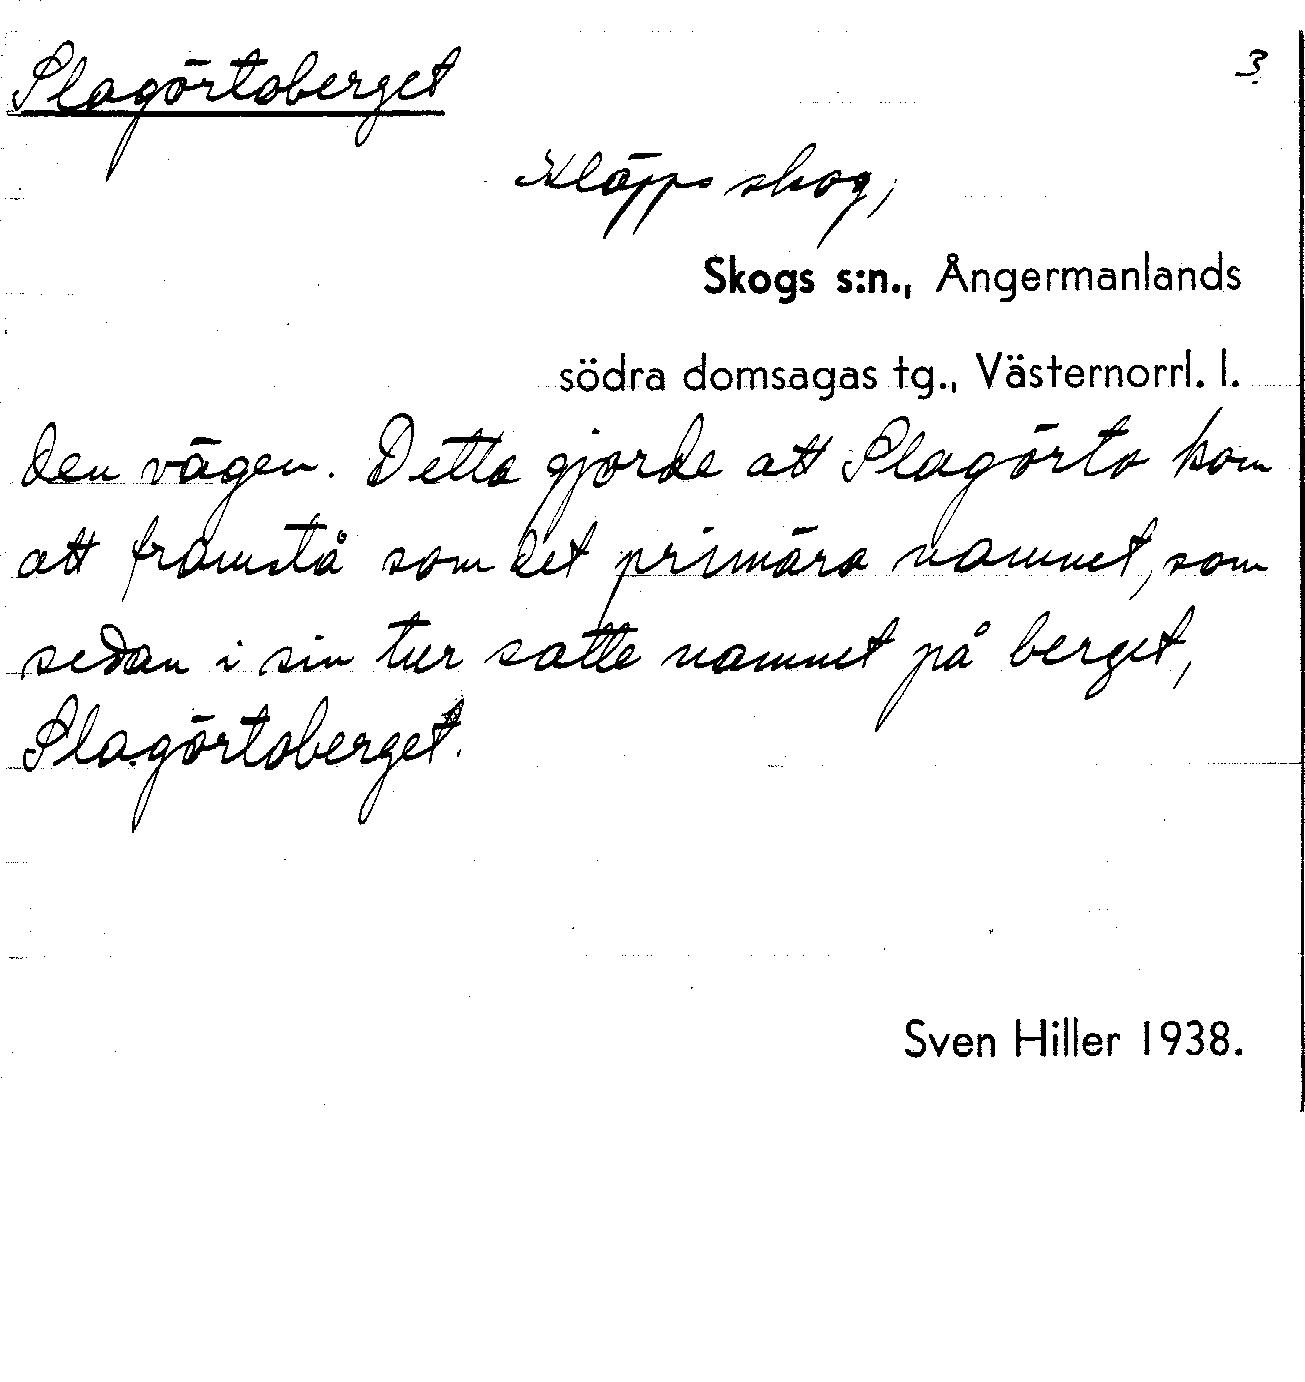 Slagörtoberget
3.
Kläpps skog,
Skogs s:n., Ångermanlands
södra domsagas tg., Västernorrl. l.
den vägen. Detta gjorde att Slagörto kom
att framstå som det primära namnet, som
sedan i sin tur satte namnet på berget,
Slagörtoberget.
Sven Hiller 1938.